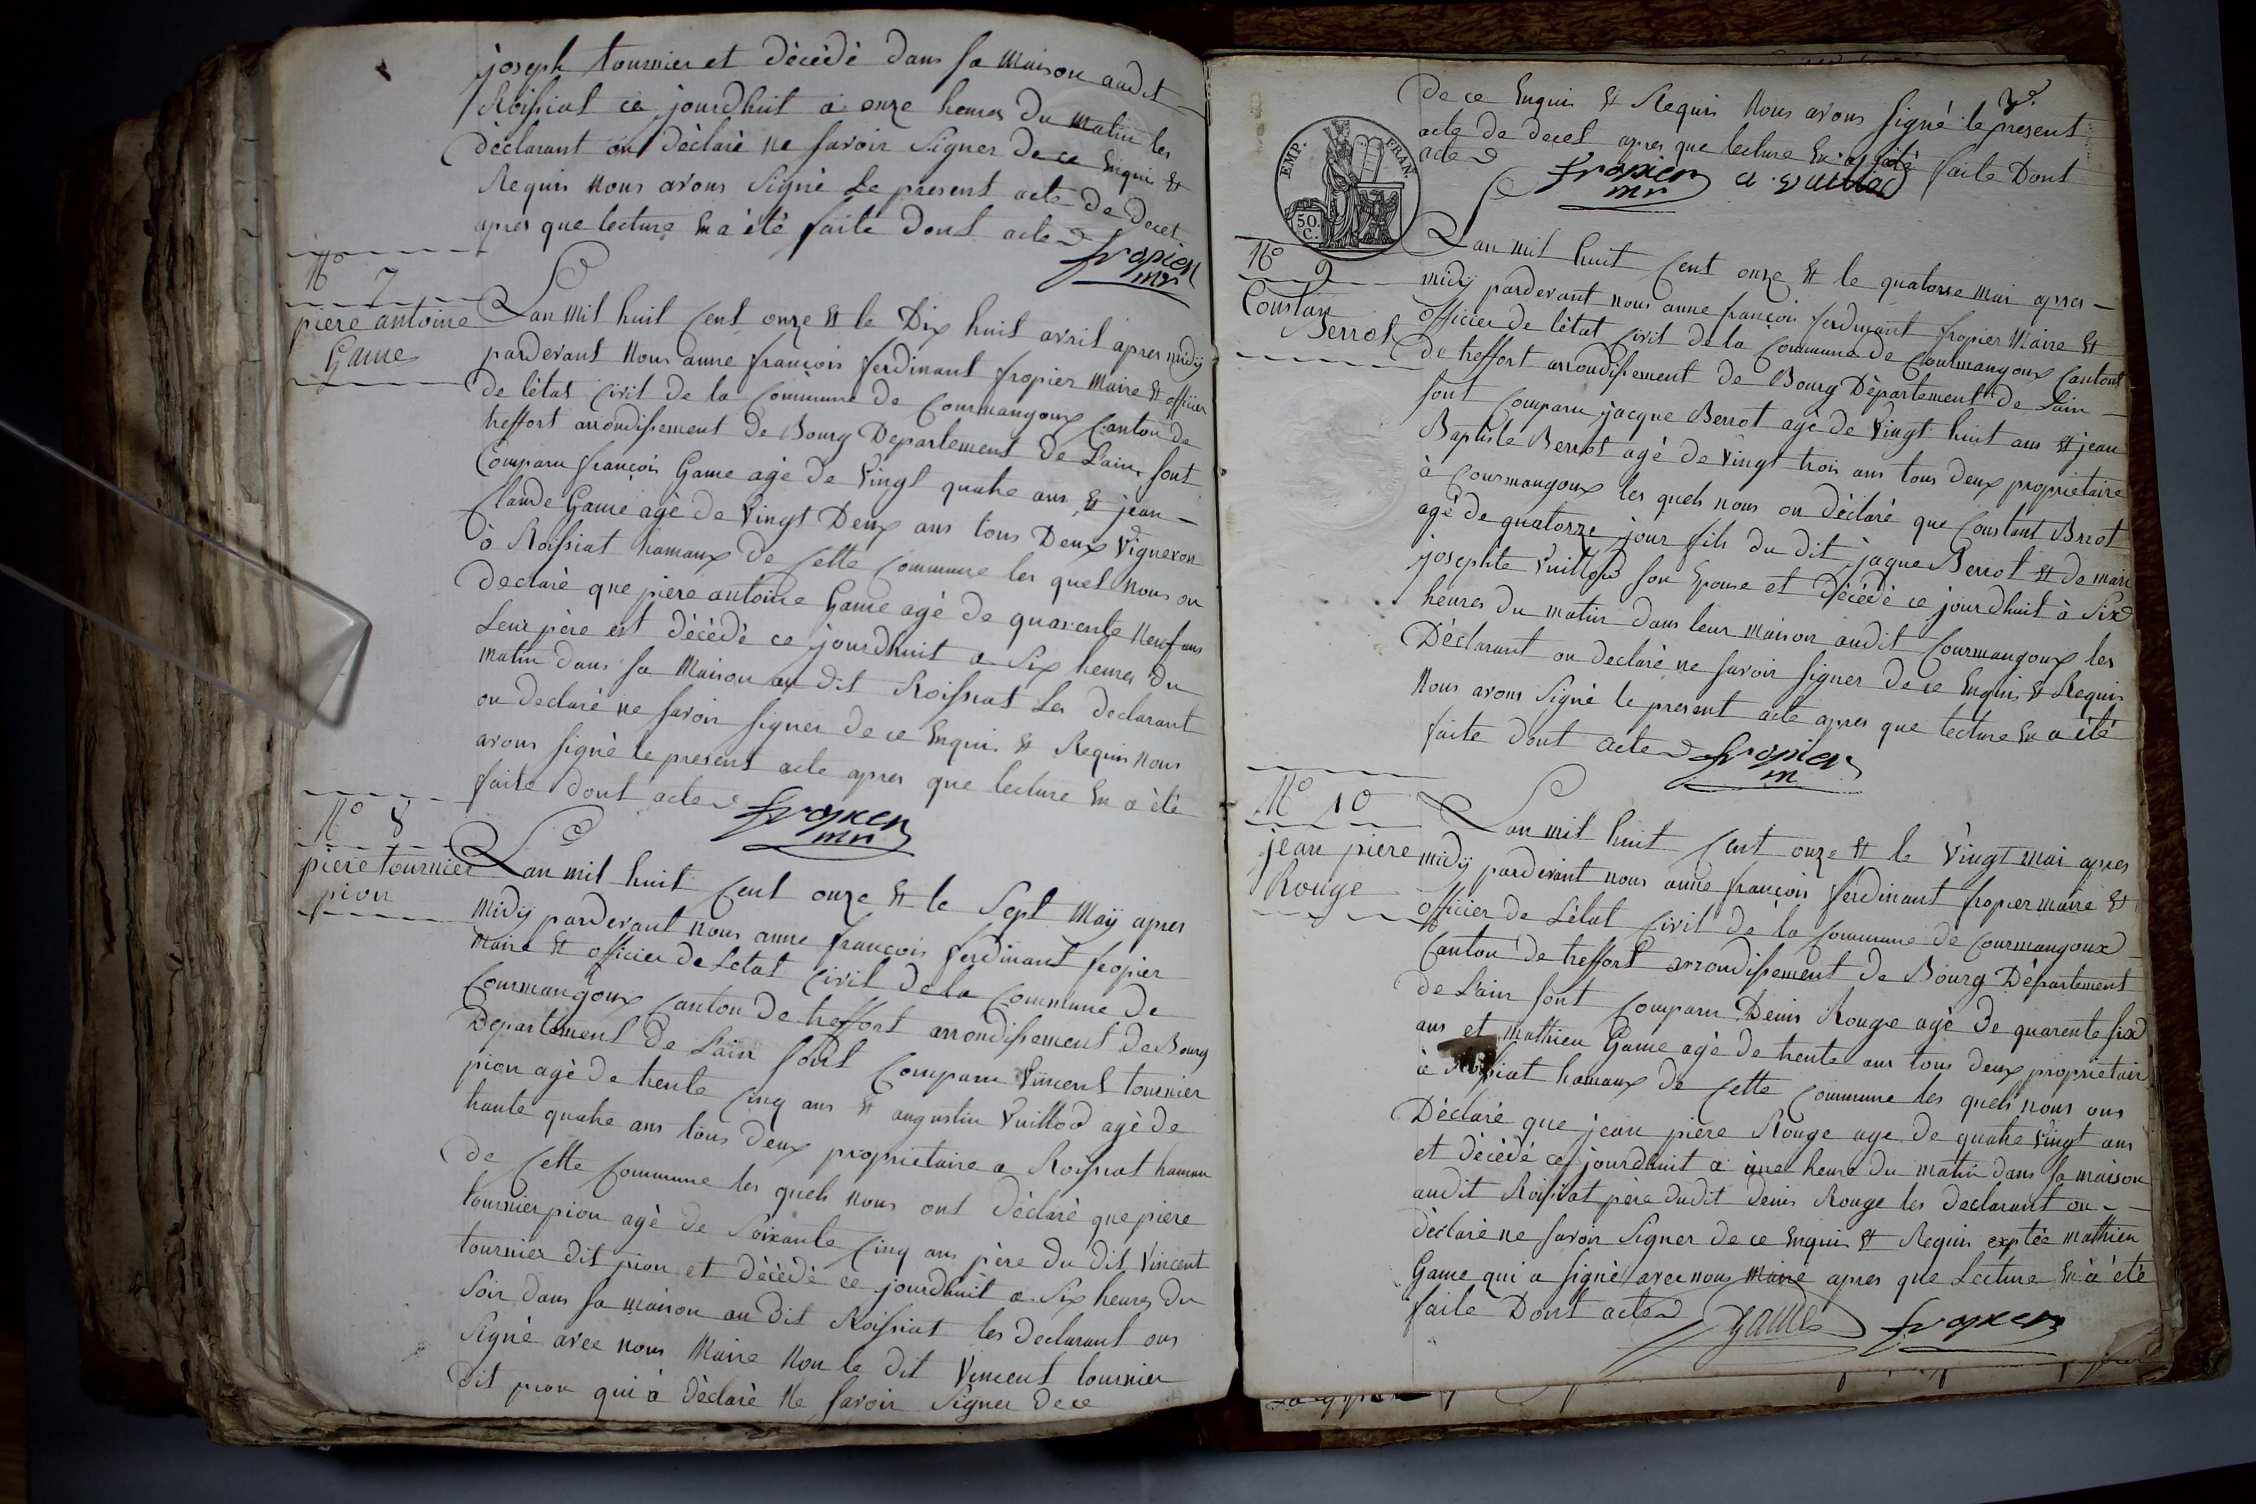 joseph tournier et dècèdè dans sa maison audit
Roissiat ce jourdhuit a onze heures du matin les
dèclarant on dèclarè ne savoir signer de ce enquis et
Requis nous avons signè le present acte de decet
apres que lecture en a ètè faite dont acte
fropier
mr
N° 7
piere antoine
Game
Lan mil huit cent onze et le dix huit avril apres midÿ
pardevant nous anne françois ferdinant fropier maire et officier
de lètat civil de la commune de Courmangoux canton de
treffort arrondissement de Bourg Departement de Lain sont
comparu françois Game agè de vingt quatre ans et jean
Claude Game agè de vingt deux ans tous deux vigneron
à Roissiat hamaux de cette commune les quel nous on
declarè que piere antoine Game agè de quarente neuf ans
leur père est dècèdè ce jourdhuit a six heures du
matin dans sa maison au dit Roissiat les declarant
on declarè ne savoir signer de ce enquis et Requis nous
avons signè le present acte apres que lecture en a ètè
faite dont acte
fropier
mr
N° 8
piere tournier
pion
Lan mil huit cent onze et le sept maÿ apres
midÿ pardevant nous anne françois ferdinant fropier
maire et officier de Letat civil de la commune de
Courmangoux canton de treffort arrondissement de Bourg
Departement de Lain sont comparu vincent tournier
pion agè de trente cinq ans et augustin vuillod agè de
trante quatre ans tous deux proprietaire a Roissiat hamau
de cette commune les quels nous ont dèclarè que piere
tournier pion agè de soixante cinq ans père du dit vincent
tournier dit pion et dècèdè ce jourdhuit a six heures du
soir dans sa maison au dit Roissiat les declarant ons
signè avec nous maire non le dit vincent tournier
dit pion qui à dèclarè ne savoir signer de ce
de ce enquis et Requis nous avons signè le present
acte de decet apres que lecture en a ètè faite dont
acte
fropier
mr
EMP. FRAN.
50.
C.
N° 9
Constan
Berrot
Lan mil huit cent onze et le quatorse mai apres
midÿ pardevant nous anne françois ferdinant fropier maire et
officier de lètat civil de la commune de Courmangoux canton
de treffort arrondissement de Bourg Dèpartement de Lain
sont comparu jacque Berrot agè de vingt huit ans et jean
Baptiste Berrot agè de vingt trois ans tous deux proprietaire
à Courmangoux les quels nous on dèclarè que Constant Brrot
agè de quatorze jour fils du dit jaque Berrot et de mari
josephte vuillod son Epouse et dècèdè ce jourdhuit à six
heures du matin dans leur maison audit Courmangoux les
Dèclarant on declarè ne savoir signer de ce enquis et Requis
nous avons signè le present acte apres que lecture en a ètè
faite dont acte
fropier
m
N° 10
jean piere
Rouge
Lan mil huit cent onze et le vingt mai apres
midÿ pardevant nous anne françois ferdinant fropier maire et
officier de Lètat civil de la commune de Courmangoux
canton de treffort arrondissement de Bourg Dèpartement
de Lain sont comparu Denis Rouge agè de quarente six
ans et mathieu Game agè de trente ans tous deux proprietair
à Roissiat hamaux de cette commune les quels nous ons
Dèclarè que jean piere Rouge age de quatre vingt ans
et dècèdè ce jourdhuit a une heure du matin dans sa maison
audit Roissiat père dudit Denis Rouge les declarant on
dèclarè ne savoir signer de ce enquis et Requis exptée mathieu
Game qui a signè avec nous maire apres que Lecture en à ètè
faite Dont acte
game
fropier